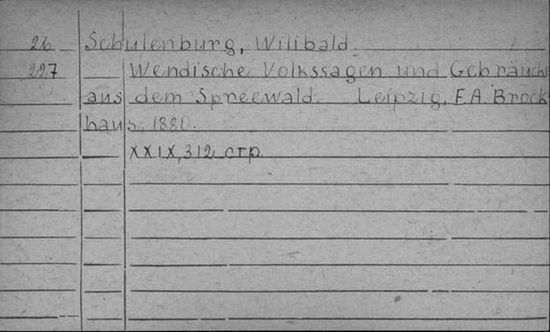 26 Schulenburg, Wilibald.
227 Wendische Volkssagen und Gebräuche
aus dem Spreewald. Leipzig, F.A. Brock
haus, 1880.
XXIX, 312 стр.